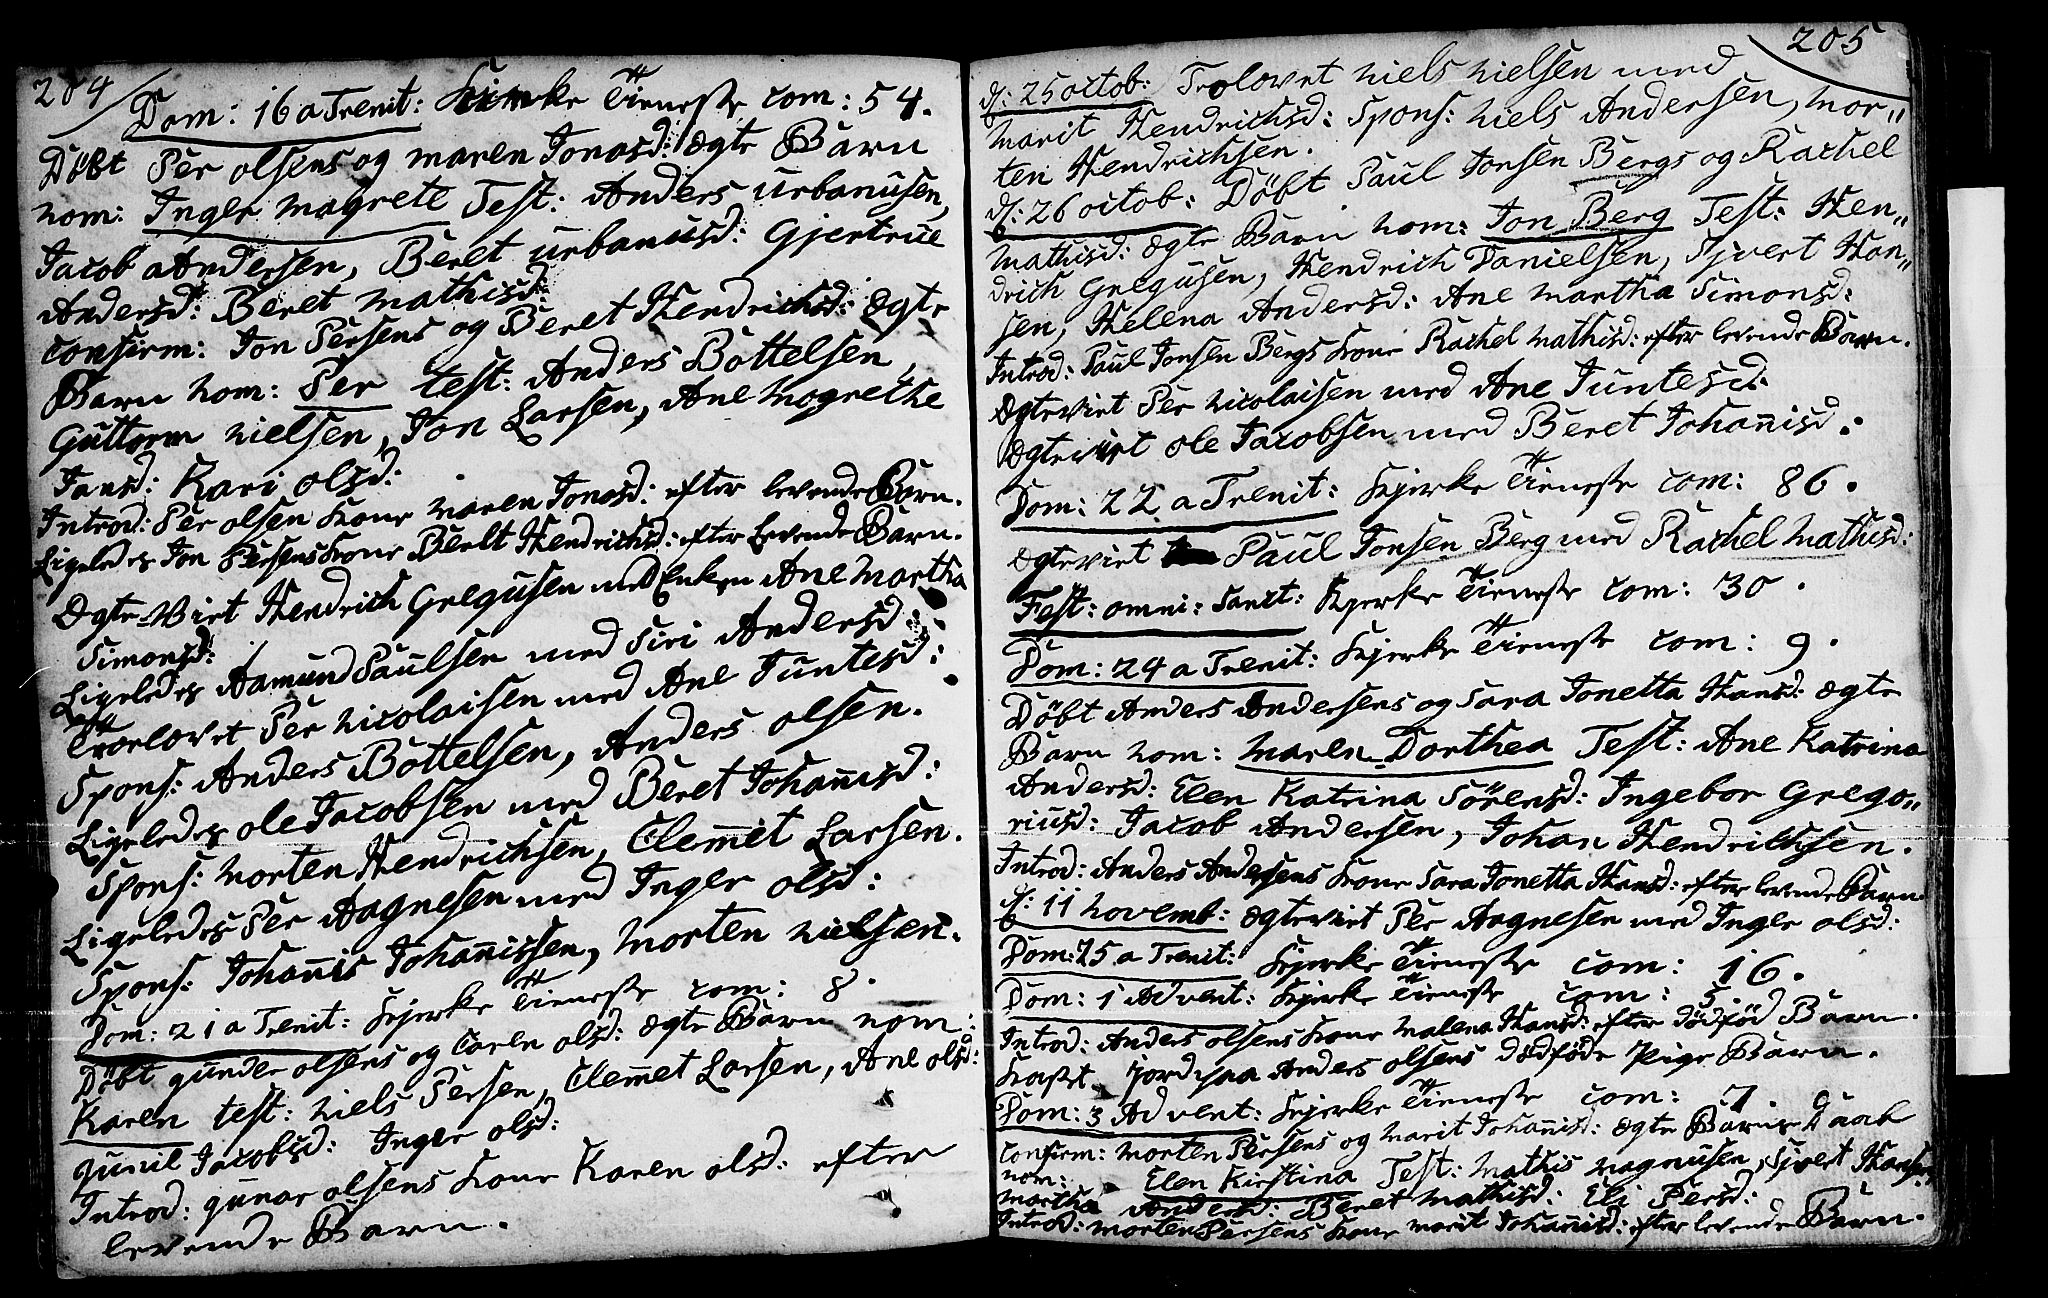 204
Dom: 16 a Trenit: Kirke Tieneste com: 54.
Döbt Per olsens og maren Jonasd: ægte Barn
nom: Inger Magrete Test: Anders urbanusen,
Jacob Andersen, Beret urbanusd: Gjertrue
Andersd: Beret Mathisd:
Confirm: Jon Persens og Beret Hendrichsd: ægte
Barn nom: Per test: Anders Bottelsen,
Guttorm Nielsen, Jon Larsen, Ane Magrethe
Jansd: Kari olsd:
Introd: Per olsen Kone maren Jonasd: efter levende Barn.
Ligeledes Jon Persens Kone Beret Hendrichsd: efter Levende Barn.
Ægte-Viet Hendrich Gregusen med Enken Ane Martha
Simonsd:
Ligeledes Aamund Paulsen med Siri Andersd:
Troelovet Per Nicolaisen med Ane Juntesd:
Spons: Anders Bottelsen, Anders olsen.
Ligeledes ole Jacobsen med Beret Johannisd:
Spons: Morten Hendrichsen, Clemmet Larsen.
Ligeledes Per Aagnesen med Inger olsd:
Spons: Johannis Johannissen, Morten Nielsen.
Dom: 21 a Trenit: Kjerke Tieneste com: 8.
Döbt gunder olsens og Caren olsd: ægte Barn nom:
Karen test: Niels Persen, Clemmet Larsen, Ane olsd:
gunil Jacobsd: Inger olsd:
Introd: gunar olsens Kone Karen olsd: efter
levende Barn.
205
d: 25 octob: Trolovet Niels Nielsen med
Marit Hendrichsd: Spons: Niels Andersen, Mor„
ten Hendrichsen.
d: 26 octob: Döbt Paul Jonsen Bergs og Rachel
Mathisd: ægte Barn nom: Jon Berg Test: Hen„
drich Gregusen, Hendrich Danielsen, Sjvert Han„
sen, Helena Andersd: Ane Martha Simonsd:
Introd: Paul Jonsen Bergs Kone Rachel Mathisd: efter levende Barn.
Ægteviet Per Nicolaisen med Ane Juntesd:
Ægteviet ole Jacobsen med Beret Johannisd.
Dom: 22 a Trenit: Kjerke Tieneste com: 86.
Ægteviet Paul Jonsen Berg med Rachel Mathisd:
Fest: omni: Sanct: Kjerke Tieneste com: 30.
Dom: 24 a Trenit: Kjerke Tieneste com: 9.
Döbt Anders Andersens og Sara Jonetta Hansd: ægte
Barn nom: Maren Dorthea Test: Ane Katrina
Andersd: Elen Katrina Sörensd: Ingebor Grego„
riusd: Jacob Andersen, Johan Hendrichsen.
Introd: Anders Andersens Kone Sara Jonetta Hansd: efter levende Barn.
d: 11 Novemb: Ægteviet Per Aagnesen med Inger olsd:
Dom: 25 a Trenit: Kjerke Tieneste com: 16.
Dom: 1 Advent: Kjerke Tieneste com: 5.
Introd: Anders olsens Kone Malena Hansd: efter dödföd Barn.
Kast Jord paa Anders olsens dödföde Pige Barn.
Dom: 3 Advent: Kjerke Tieneste com: 7.
Confirm: Morten Persens og Marit Johannisd: ægte Barns Daab
nom: Elen Kirstina Test: Mathis Magnusen, Sjvert Hansen,
Martha Andersd: Beret Mathisd: Eli Persd:
Introd: Morten Persens Kone Marit Johannisd: efter levende Barn.